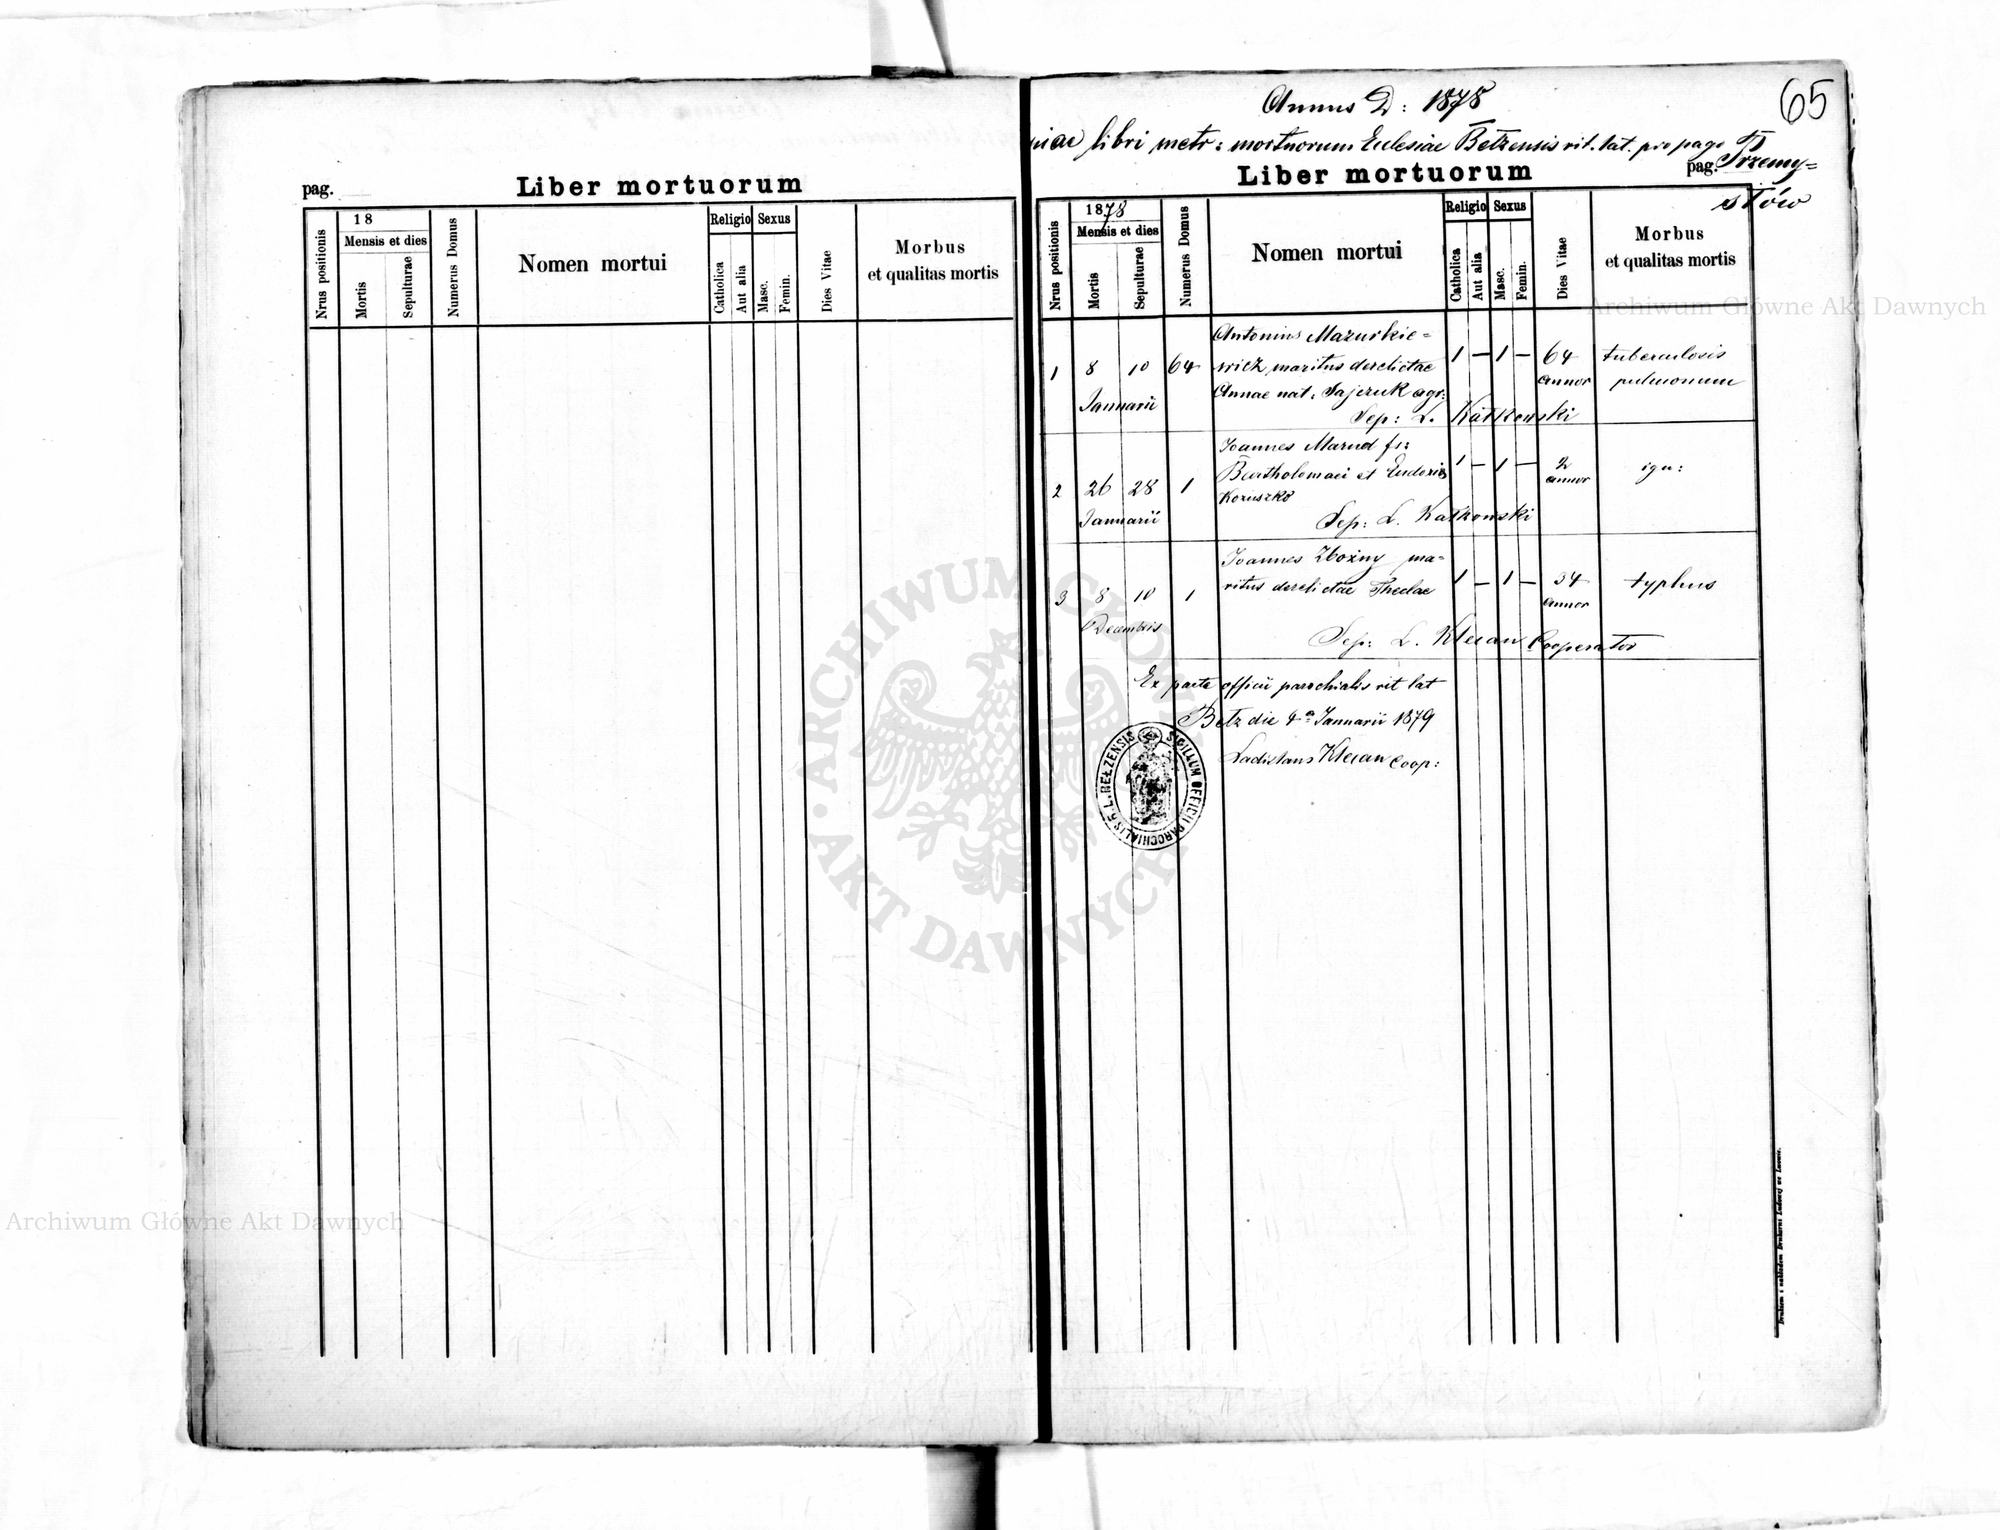 65
Annus D: 1878
piae libri metr: mortuorum Eclesiae Bełzensis rit. lat. pro pago Przemy=
słów
pag.
Liber mortuorum
Nrus positionis
18
Mensis et dies
Mortis
Sepulturae
Numerus Domus
Nomen mortui
Religio
Catholica
Aut alia
Sexus
Masc.
Femin.
Dies Vitae
Morbus
et qualitas mortis
Liber mortuorum
pag.
Nrus positionis
1878
Mensis et dies
Mortis
Sepulturae
Numerus Domus
Nomen mortui
Religio
Catholica
Aut alia
Sexus
Masc.
Femin.
Dies Vitae
Morbus
et qualitas mortis
Antonius Mazurkie=
1 8 10 64 wicz, maritus derelictae 1 – 1 – 64 tuberculosis
Januarii Annae nat. Sajczuk agr: annor pulmonum
Sep: L. Kałkowski
Joannes Mazud fs:
Bartholomaei et Eudoxia 1 – 1 – 2 ign:
2 26 28 1 Kozuszko annor
Januarii Sep: L. Kałkowski
Joannes Zbożny ma=
3 8 10 1 ritus derelictae Theclae 1 – 1 – 34 typhus
Decembris annor
Sep: L. Klecan Cooperator
Ex parte officii parochialis rit lat
Bełz die 4a Januarii 1879
Ladislaus Klecan Coop:
SIGILLUM OFFICII PAROCHIALIS R. L. BEŁZENSIS
Drukiem i nakładem Drukarni Ludowej we Lwowie.
ARCHIWUM GŁÓWNE AKT DAWNYCH
Archiwum Główne Akt Dawnych
Archiwum Główne Akt Dawnych